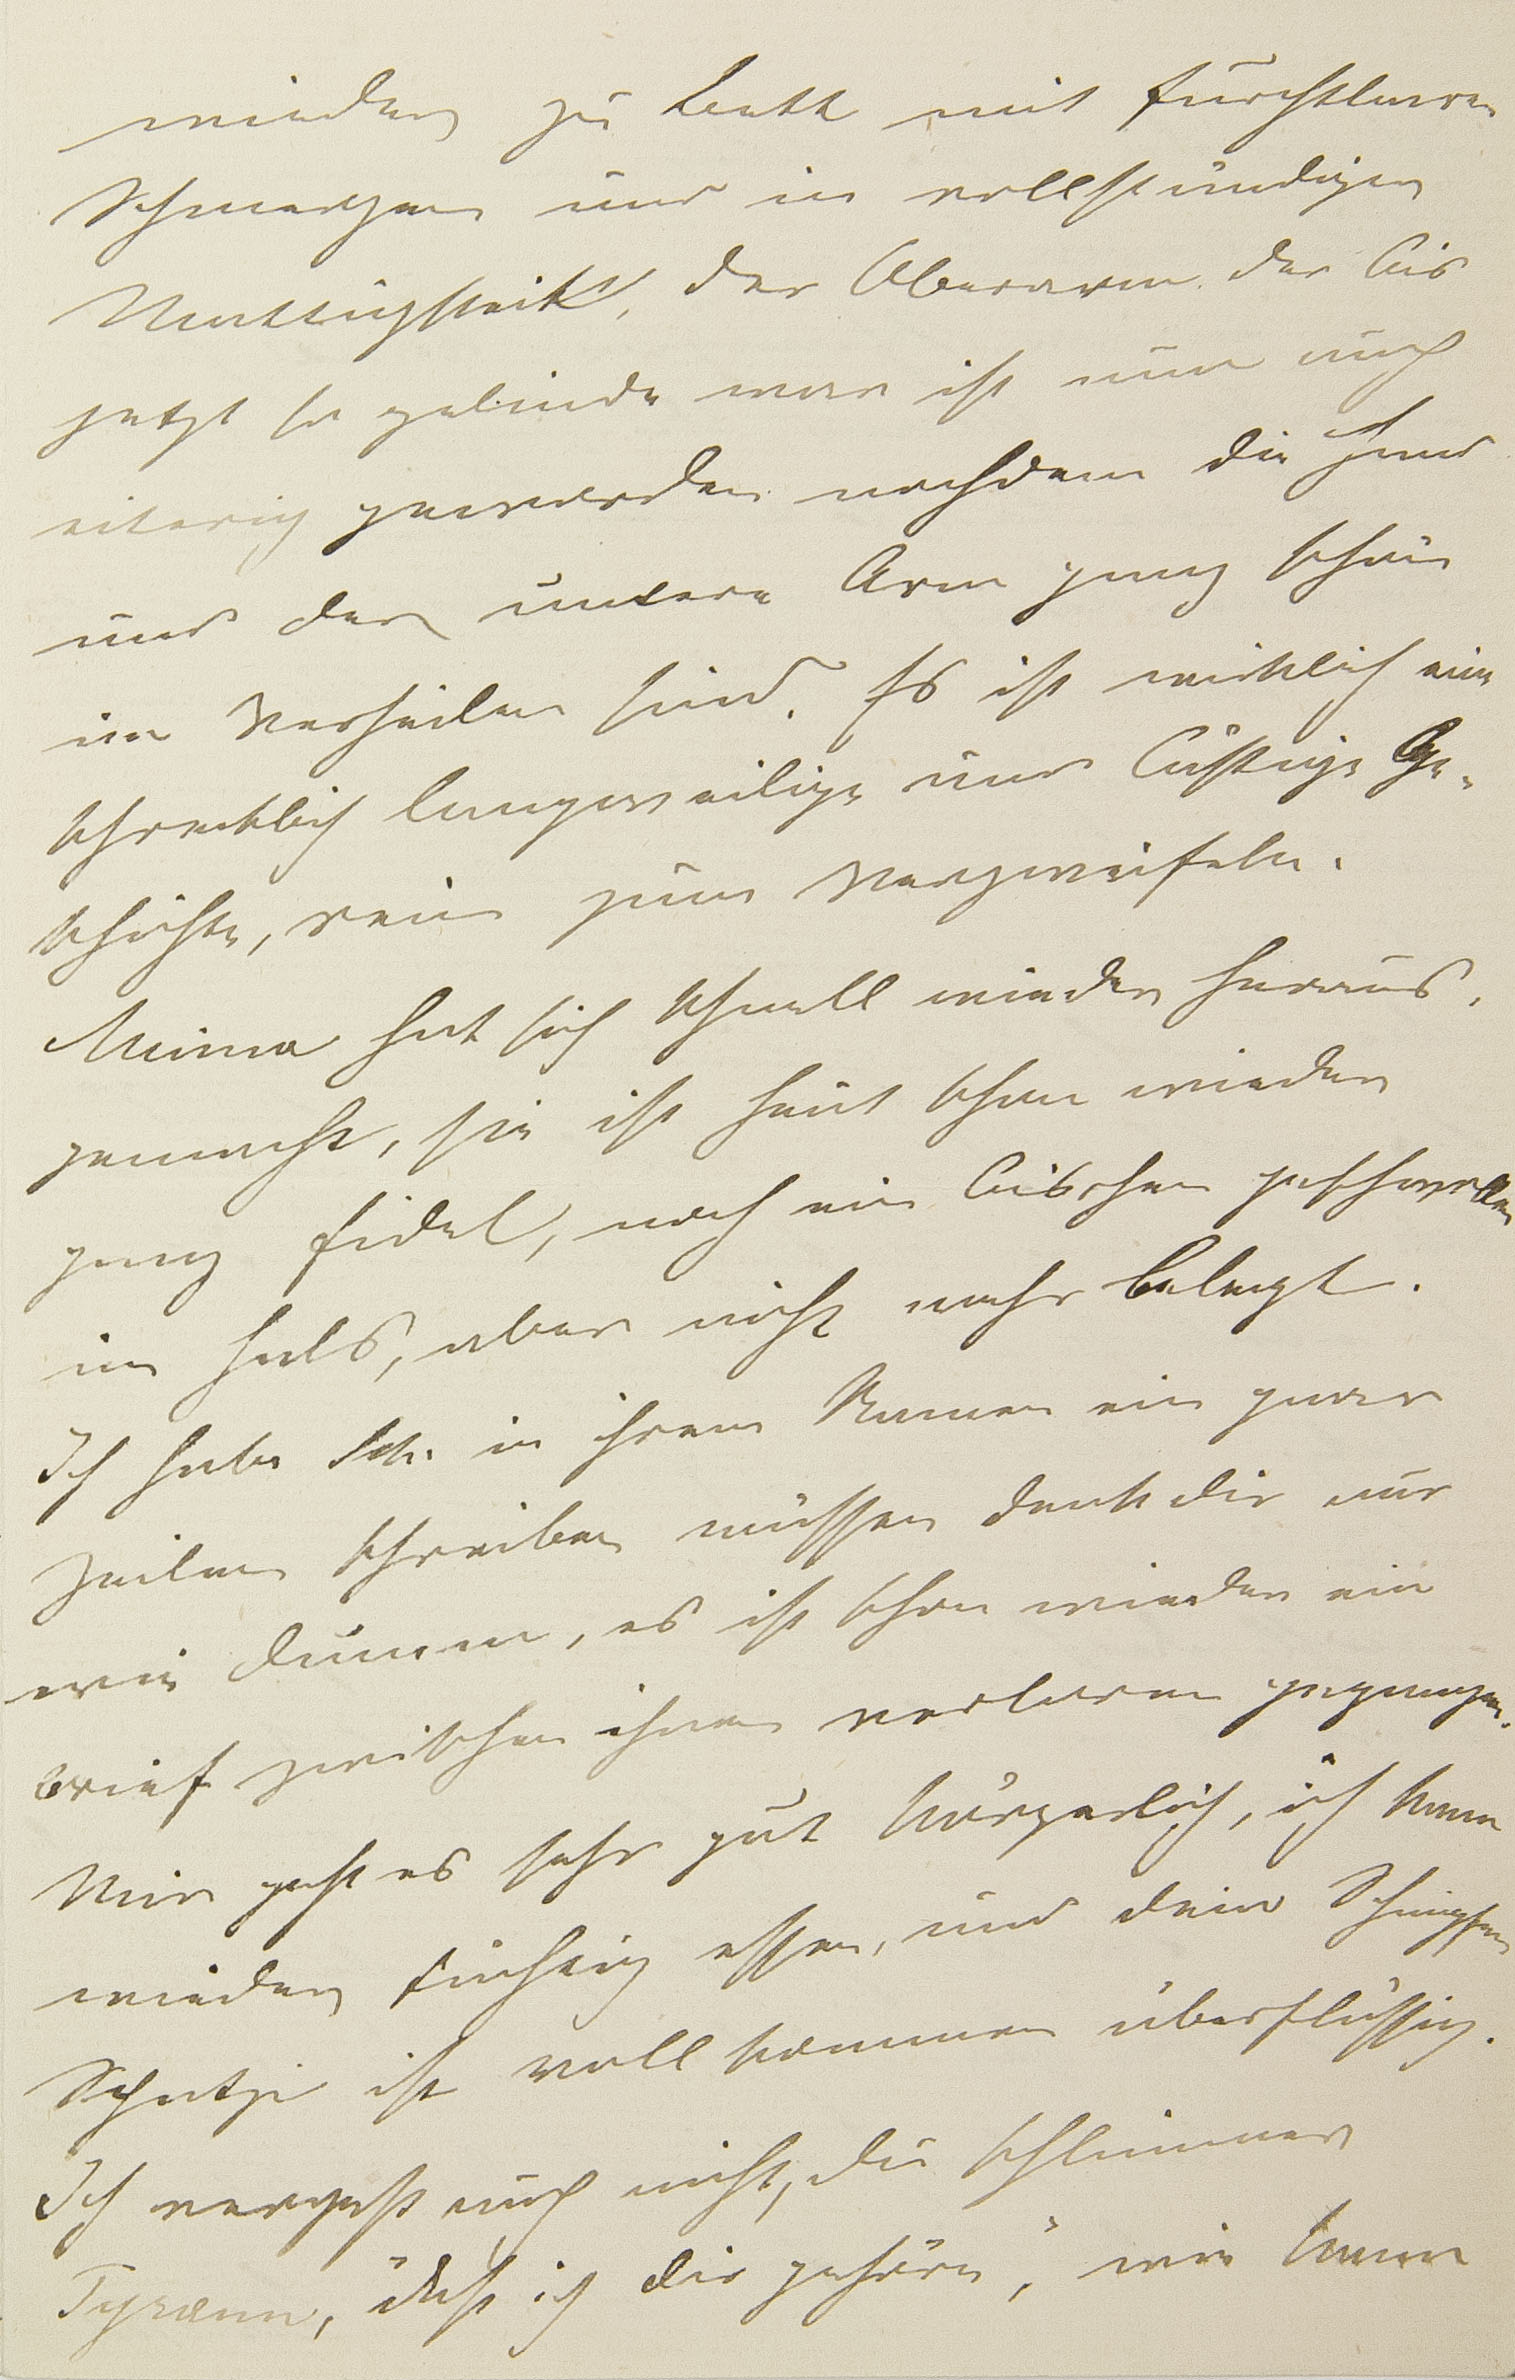 wieder zu Bett mit furchtbaren
Schmerzen und in vollständiger
Muttigkeit, der Oberarm der bis
jetzt so gelinde war ist nun auch
eiterig geworden nachdem die Hand
und der untere Arm ganz schön
im Verheilen sind. Es ist wirklich eine
schrecklich langweilige und lästige Ge-
schichte, rein zum verzweifeln.
Minna hat sich schnell wieder heraus-
gemacht, sie ist heut schon wieder
ganz fidel, noch ein bischen geschwollen
im Hals, aber nicht mehr belegt.
Ich habe Sch. in ihrem Namen ein paar
Zeilen schreiben müssen denk dir nur
wie dumm, es ist schon wieder ein
Brief zwischen ihnen verloren gegangen.
Mir geht es sehr gut körperlich, ich kann
wieder tüchtig essen, und dein Schimpfen
Schatzi ist vollkommen überflüssig.
Ich vergeß auch nicht, du schlimmer
Tyrann, "daß ich dir gehöre", wie kann